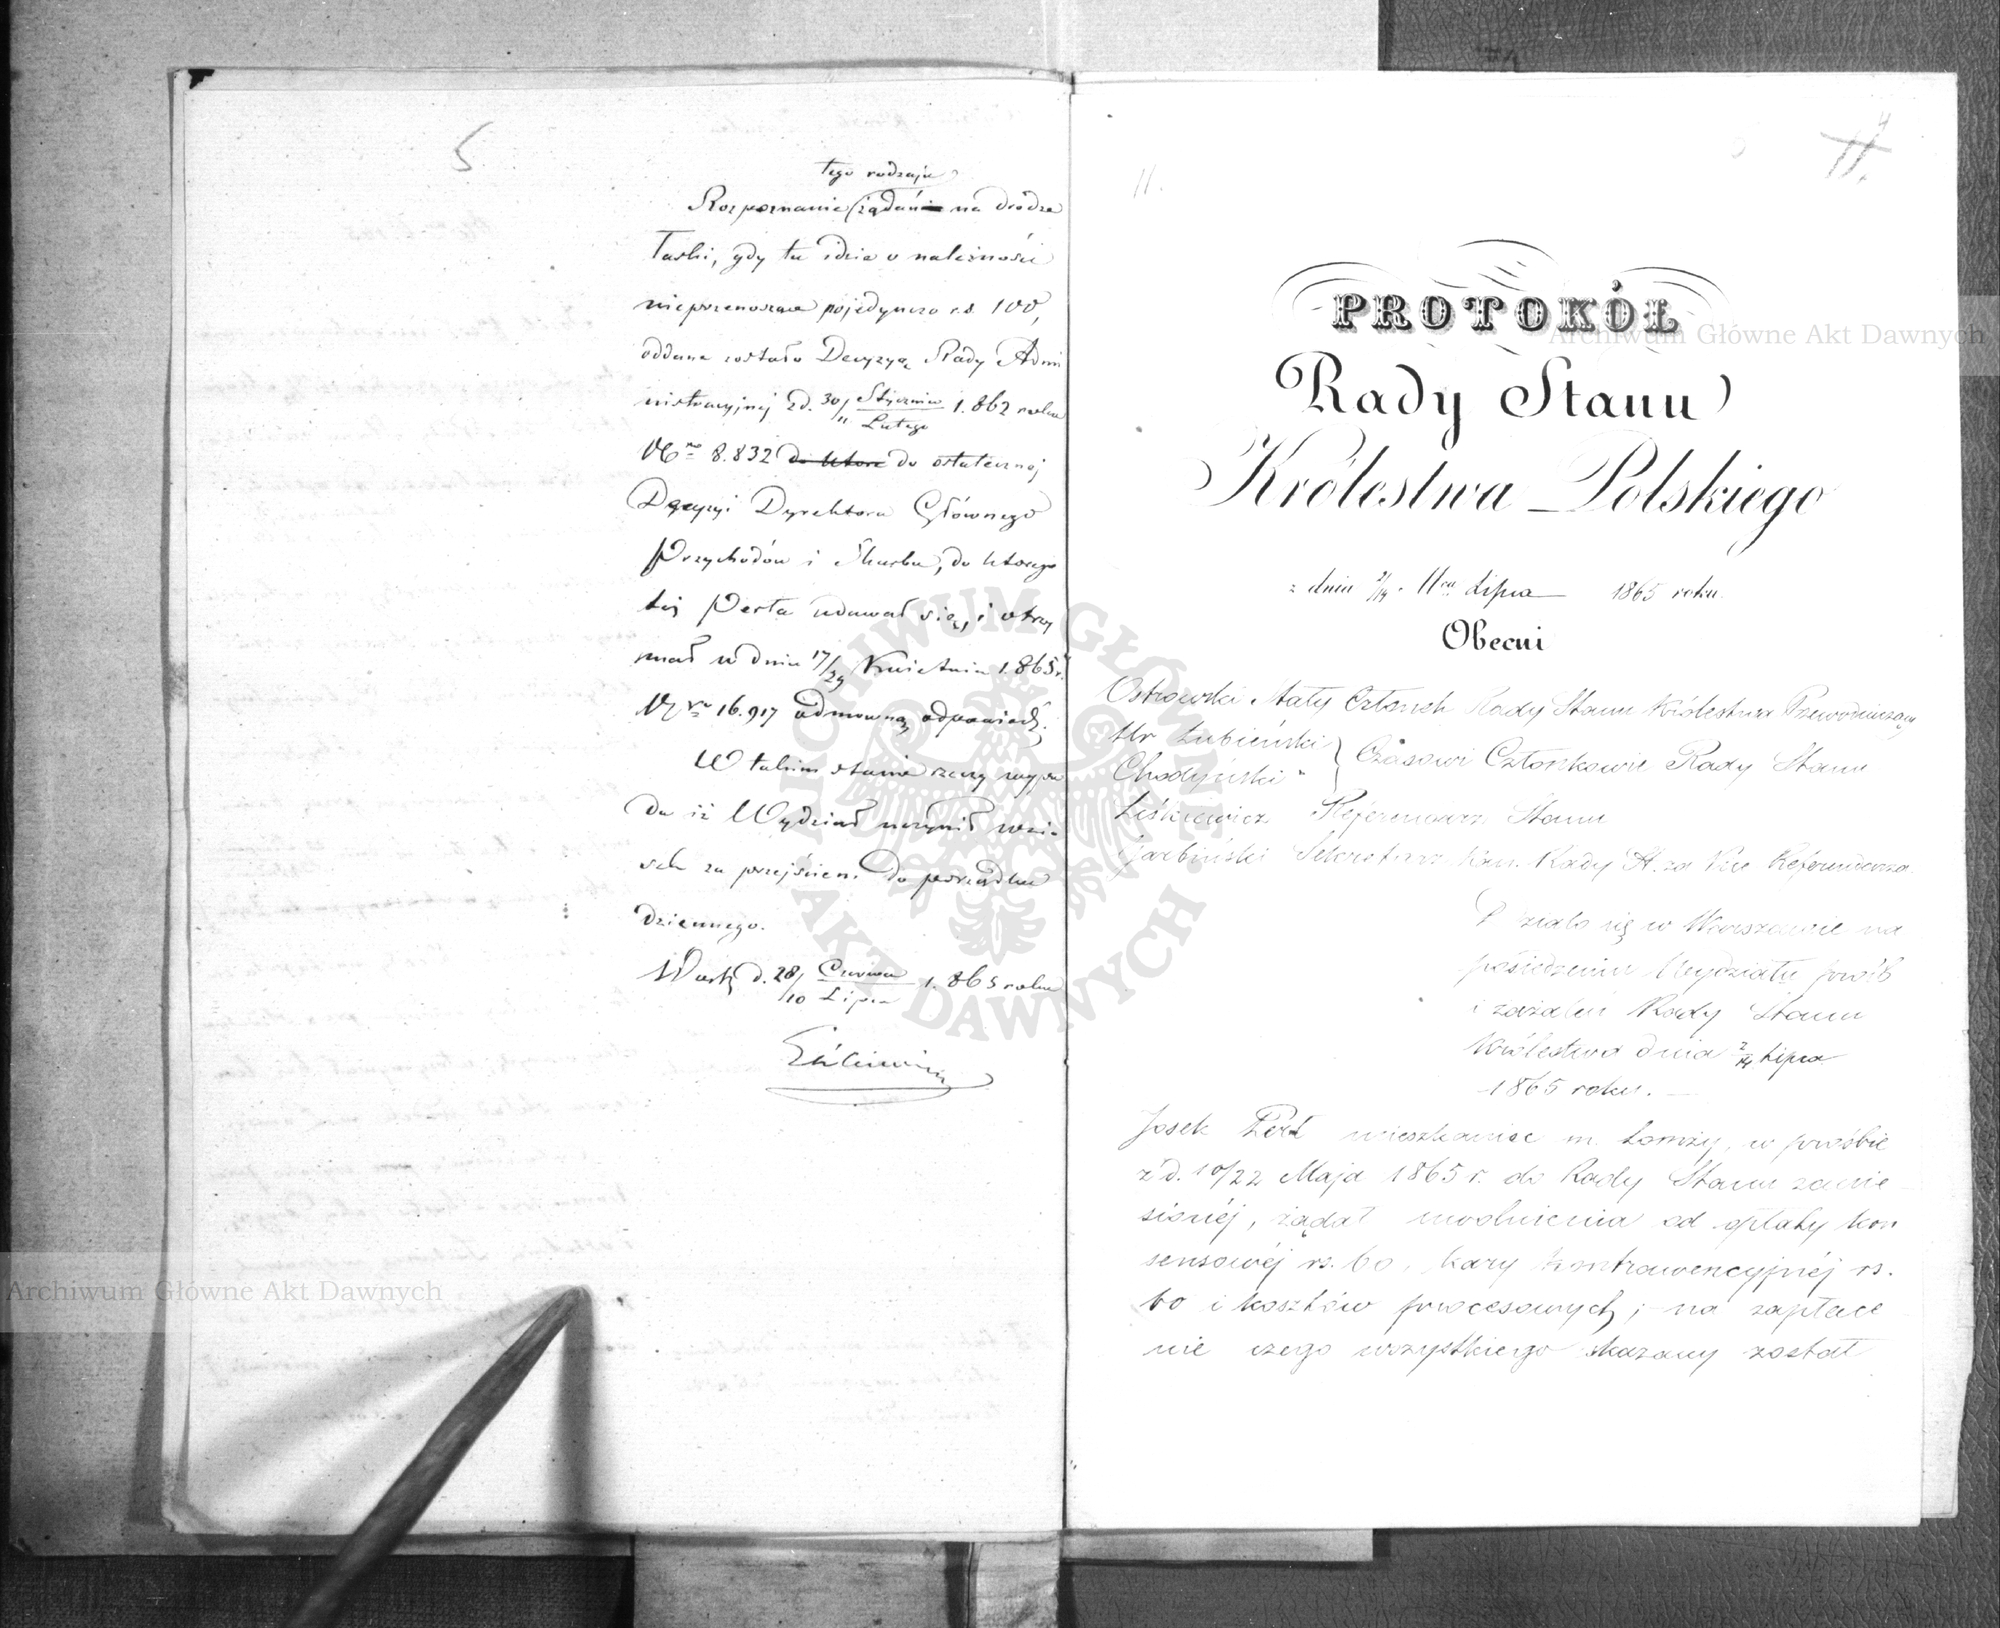 5
tego rodzaju
Rozpoznanie żądań na drodze
Łaski, gdy tu idzie o należności
nieprzenoszące pojedynczo r.s. 100,
oddane zostało Decyzyą Rady Admi
nistracyjnej z d. 30/11 Stycznia/Lutego 1.862 roku
No 8.832 do które do ostatecznej
Decyzyi Dyrektora Głównego
Przychodów i Skarbu, do którego
też Perla udawał się, i otrzy
mał w dniu 17/29 Kwietnia 1.865 r.
Nro 16.917 odmowną odpowiedź.
W takim stanie rzeczy wypa
da iż Wydział uczynił wnio
sek za przejściem do porządku
dziennego.
d. 28/10 Czerwca/Lipca 1.865 roku
4
11.
11.
PROTOKÓŁ
Rady Stanu
Królestwa Polskiego
z dnia 2/14 Lipca 1865 roku.
Obecni
Ostrowski Stały Członek Rady Stanu Królestwa Przewodniczący
Hr Łubieński } Czasowi Członkowie Rady Stanu
Chodyński "
Liśkiewicz Referendarz Stanu
Garbiński Sekretarz Kan. Rady St. za Vice Referendarza.
Działo się w Warszawie na
posiedzeniu Wydziału próśb
i zażaleń Rady Stanu
Królestwa dnia 2/14 Lipca
1865 roku.
Josek Perl mieszkaniec m. Łomży, w prośbie
z d. 10/22 Maja 1865 r. do Rady Stanu zanie
sionéj, żądał uwolnienia od opłaty kon
sensowéj rs. 60, kary kontrawencyjnéj rs.
60 i kosztów procesowych; na zapłace
nie czego wszystkiego skazany został
Archiwum Główne Akt Dawnych
Archiwum Główne Akt Dawnych
ARCHIWUM GŁÓWNE AKT DAWNYCH